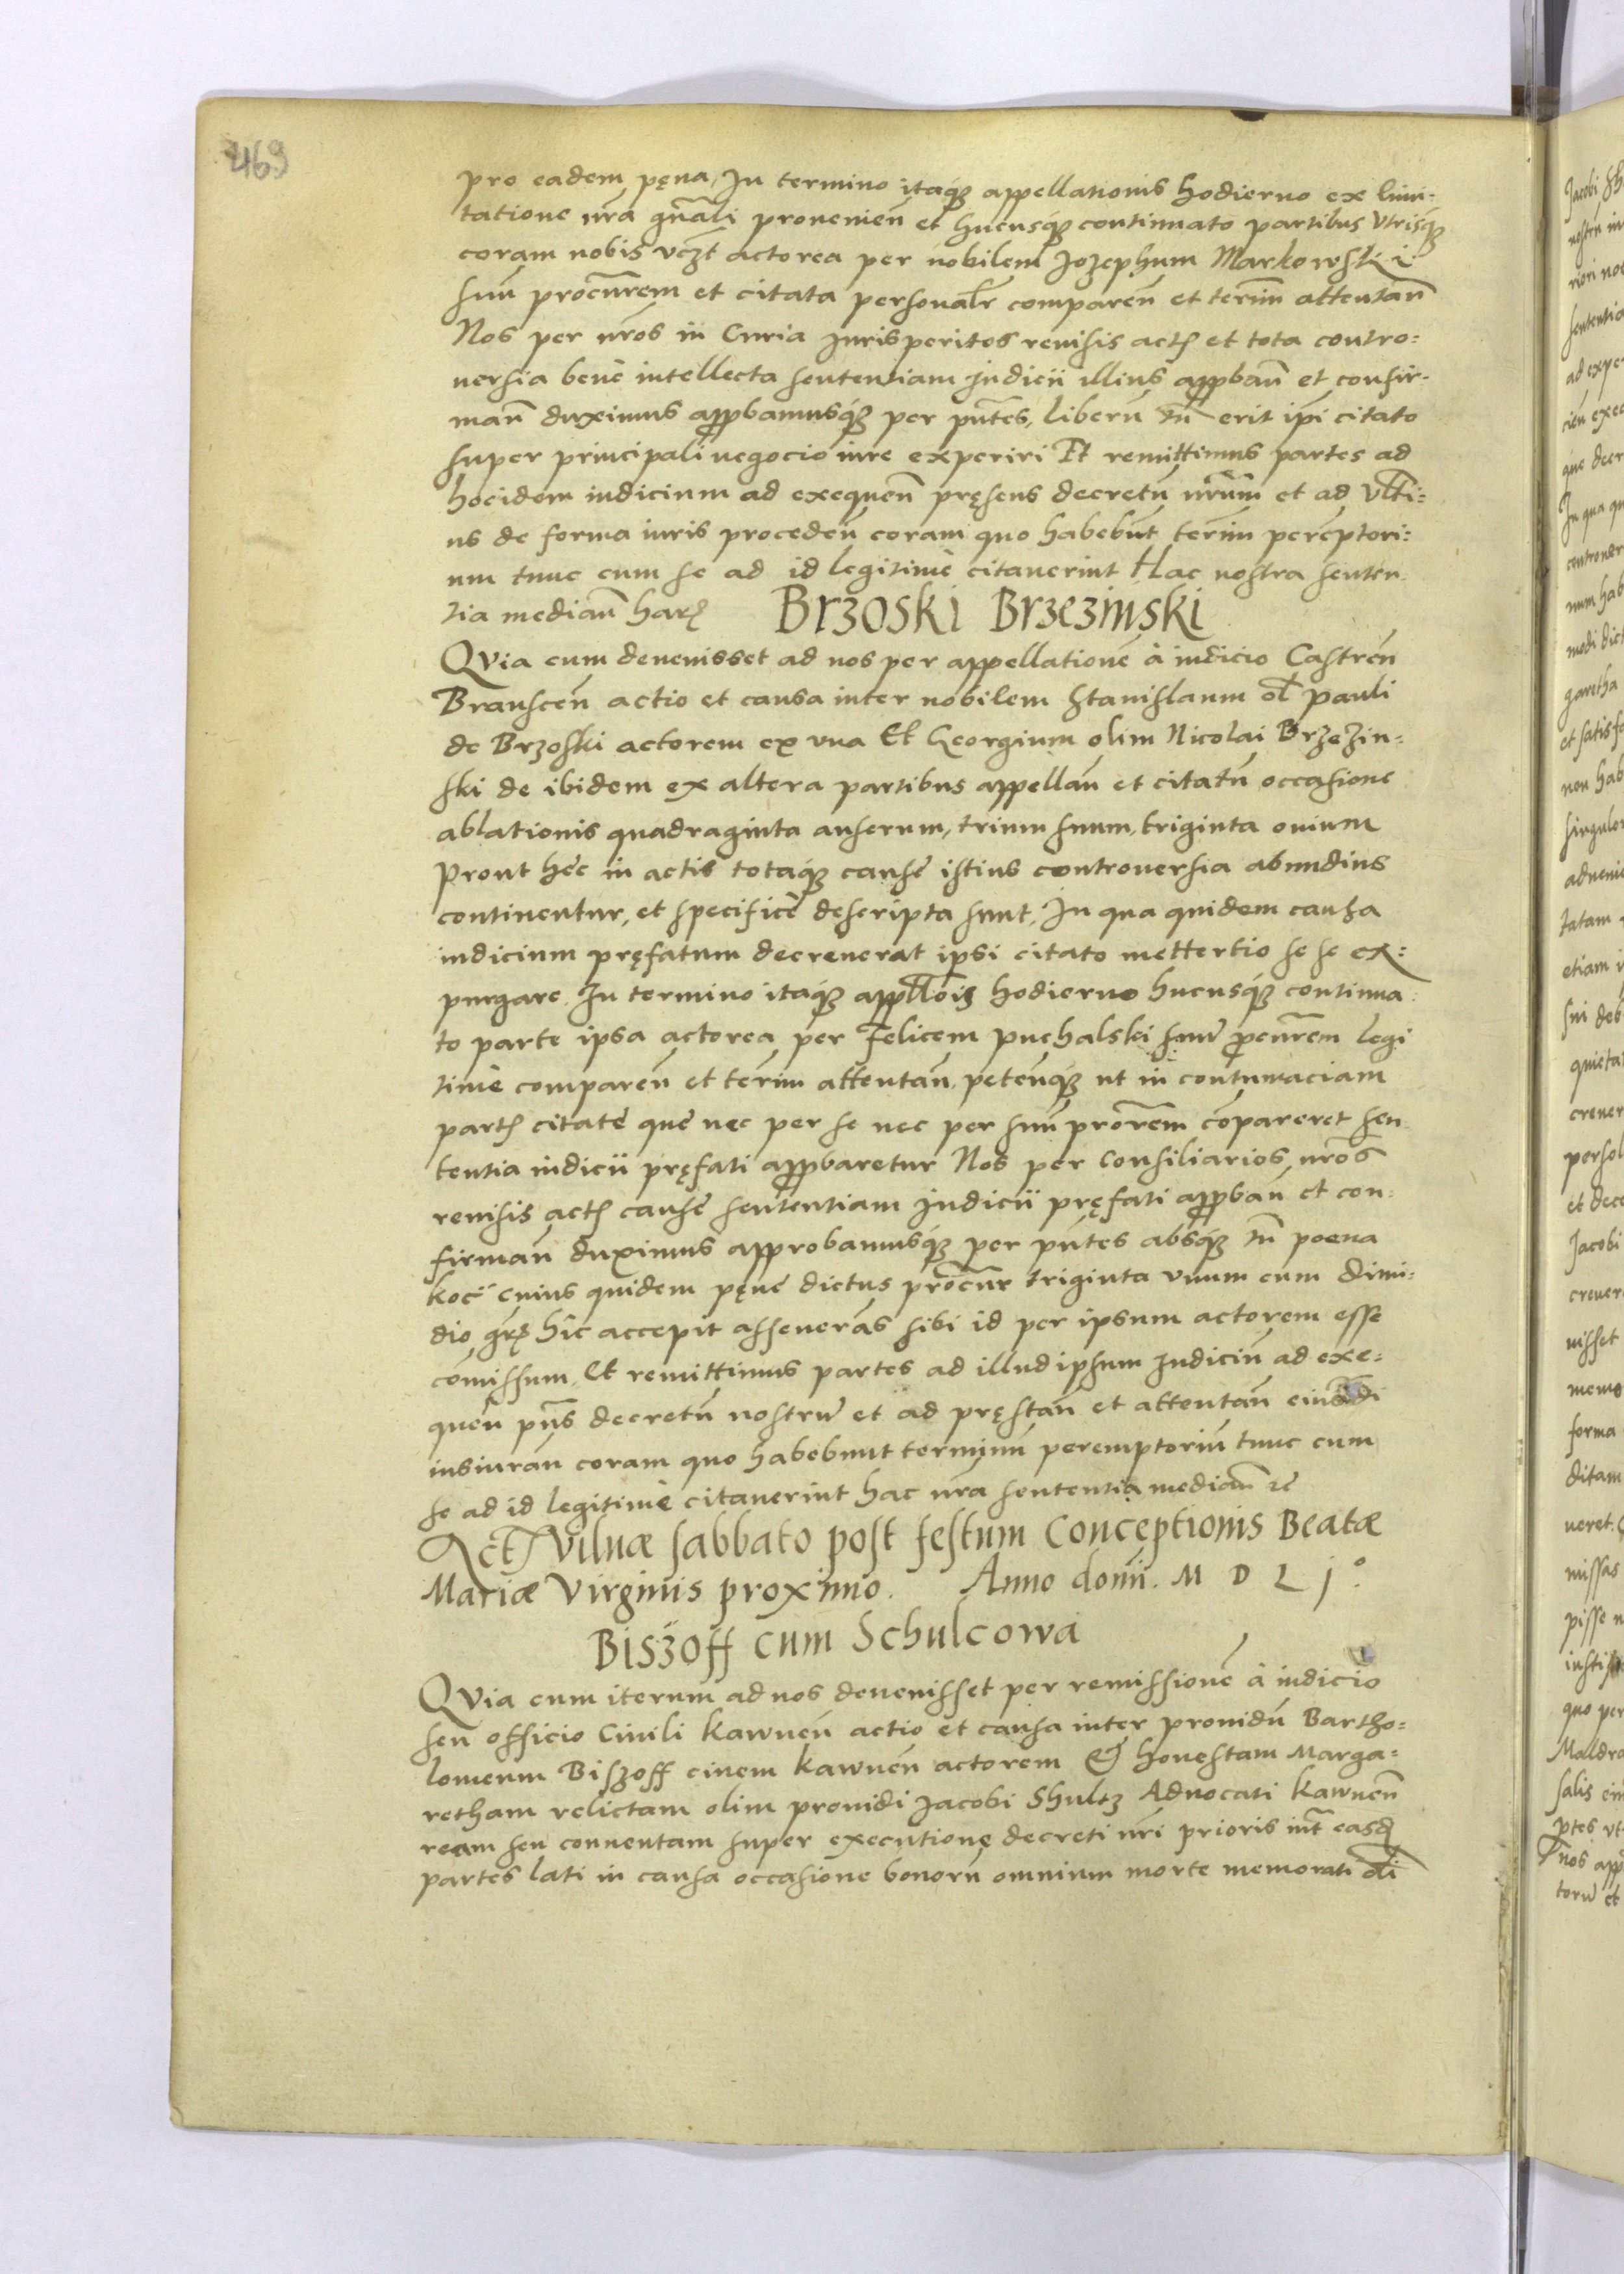 469
pro eadem pęna, In termino itaq́ꝫ appellationis hodierno ex limi-
tatione nr̃a gñali prouenien̄ et hucusq́ꝫ continuato partibus vtrisq́ꝫ
coram nobis vcꝫt actorea per nobilem Jozephum Markowski
suū procurem̄ et citata personalr̃ comparen̄ et term̄ attentan̄
Nos per nr̃os in Curia Jurisperitos reuisis actꝭ et tota contro:
uersia bene intellecta sententiam Judicii illius appbān et confir-
man̄ duximus appbamusq́ꝫ per pñtes, liberū tñ erit ip̄i citato
super principali negocio iure experiri Et remittimus partes ad
hocidem iudicium ad exequen̄ pręsens decretū nr̃um et ad vlti:
us de forma iuris proceden̄ coram quo habebūt term̄ peremptori:
um tunc cum se ad id legitime citauerint Hac nostra senten
tia median̄ harꝭ Brzoski Brzezinski
QVia cum deuenisset ad nos per appellationē à iudicio Castren̄
Branscen̄ actio et causa inter nobilem Stanislaum ol̄ Pauli
de Brzoski actorem ex vna Et Georgium olim Nicolai Brzezin-
ski de ibidem ex altera partibus appellan̄ et citatū occasione
ablationis quadraginta anserum, trium suum, triginta ouium
Prout hęc in actis totaq́ꝫ causę istius controuersia abundius
continentur, et specificè descripta sunt, In qua quidem causa
iudicium pręfatum decreuerat ipsi citato mettertio se se ex:
purgare. In termino itaq́ꝫ appll̃ois hodierno hucusq́ꝫ continua:
to parte ipsa actorea per Felicem Puchalski suū p̄curem̄ legi
time comparen̄ et term̄ attentan̄, peten̄q́ꝫ ut in contumaciam
partꝭ citatę quę nec per se nec per suū prorem̄ cōpareret sen
tentia iudicii pręfati appbaretur Nos per Consiliarios nr̃os
reuisis actꝭ causę sententiam Judicii pręfati appban̄ et con-
firman̄ duximus approbamusq́ꝫ per pñtes absq́ꝫ tñ poena
kocii cuius quidem pęnę dictus procur̄ triginta vnum cum dimi:
dio gr̃ꝭ hic accepit asseuerās sibi id per ipsum actorem esse
cōmissum, Et remittimus partes ad illud ipsum Judiciū ad exe:
quen̄ pñs decretū nostrū et ad pręstan̄ et attentan̄ eiusdi
insiuran̄ coram quo habebunt terminū peremptoriū tunc cum
se ad id legitimè citauerint hac nr̃a sententia median̄ ꝛc̄
Actꝭ Vilnæ sabbato post festum Conceptionis Beatæ
Mariæ Virginis proximo. Anno domi. M D L jº.
Biszoff cum Schulcowa
QVia cum iterum ad nos deuenisset per remissionē à iudicio
seu officio Ciuili Kawnen̄ actio et causa inter prouidū Bartho-
lomeum Biszoff ciuem Kawnen̄ actorem & honestam Marga-
retham relictam olim prouidi Jacobi Shultz Aduocati Kawnen̄
ream seu conuentam super executionę decreti nr̃i prioris int̄ easdꝭ
partes lati in causa occasione bonorū omnium morte memorati oli